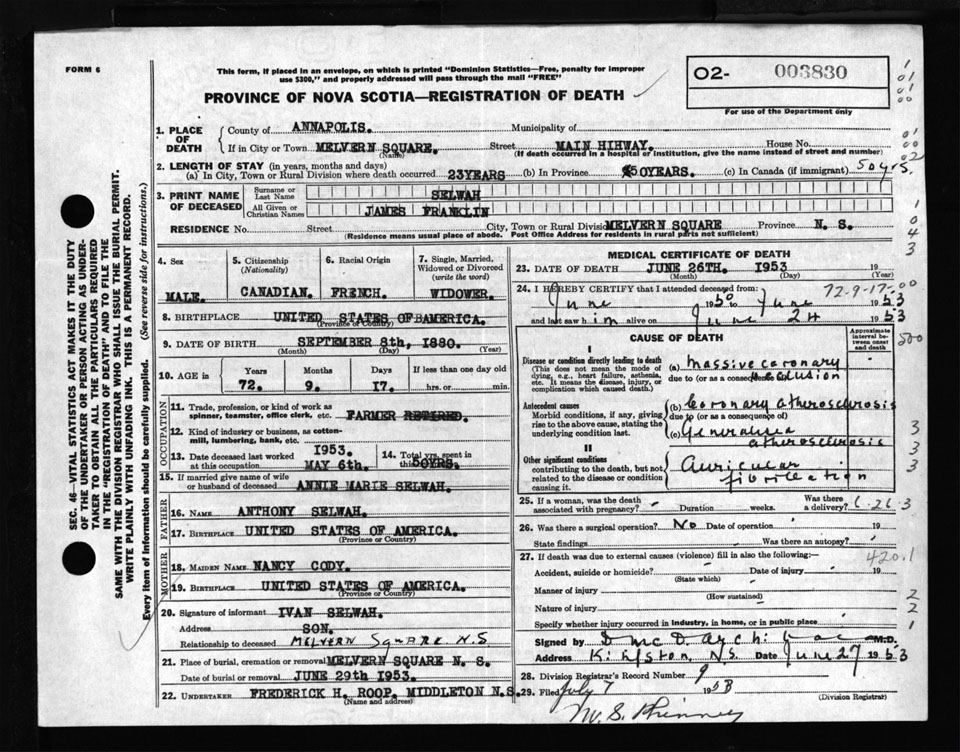 FORM 6
This form, if placed in an envelope, on which is printed "Dominion Statistics—Free, penalty for improper
use $300," and properly addressed will pass through the mail "FREE"
PROVINCE OF NOVA SCOTIA—REGISTRATION OF DEATH
O2- 003830
For use of the Department only
1 01 01 00
01 00 02
1. PLACE OF DEATH
County of ANNAPOLIS. Municipality of
If in City or Town MELVERN SQUARE. Street MAIN HIHWAY. House No.
(Name) (If death occurred in a hospital or institution, give the name instead of street and number)
2. LENGTH OF STAY (in years, months and days)
(a) In City, Town or Rural Division where death occurred 23YEARS (b) In Province 50YEARS. (c) In Canada (if immigrant) 50yrs.
3. PRINT NAME OF DECEASED
Surname or Last Name SELWAH
All Given or Christian Names JAMES FRANKLIN
RESIDENCE No. Street City, Town or Rural Division MELVERN SQUARE Province N. S.
(Residence means usual place of abode. Post Office Address for residents in rural parts not sufficient)
1 0 4 3
SEC. 46—VITAL STATISTICS ACT MAKES IT THE DUTY
OF THE UNDERTAKER OR PERSON ACTING AS UNDER-
TAKER TO OBTAIN ALL THE PARTICULARS REQUIRED
IN THE "REGISTRATION OF DEATH" AND TO FILE THE
SAME WITH THE DIVISION REGISTRAR WHO SHALL ISSUE THE BURIAL PERMIT.
WRITE PLAINLY WITH UNFADING INK. THIS IS A PERMANENT RECORD.
Every item of Information should be carefully supplied. (See reverse side for instructions.)
4. Sex
MALE.
5. Citizenship
(Nationality)
CANADIAN.
6. Racial Origin
FRENCH.
7. Single, Married,
Widowed or Divorced
(write the word)
WIDOWER.
8. BIRTHPLACE UNITED STATES OF AMERICA.
(Province or Country)
9. DATE OF BIRTH SEPTEMBER 8th, 1880.
(Month) (Day) (Year)
10. AGE in
Years Months Days If less than one day old
72. 9. 17. hrs. or min.
OCCUPATION
11. Trade, profession, or kind of work as
spinner, teamster, office clerk, etc. FARMER RETIRED.
12. Kind of industry or business, as cotton-
mill, lumbering, bank, etc.
13. Date deceased last worked
at this occupation 1953. MAY 6th.
14. Total yrs. spent in
this 50YRS.
15. If married give name of wife
or husband of deceased ANNIE MARIE SELWAH.
FATHER
16. NAME ANTHONY SELWAH.
17. BIRTHPLACE UNITED STATES OF AMERICA.
(Province or Country)
MOTHER
18. MAIDEN NAME NANCY CODY.
19. BIRTHPLACE UNITED STATES OF AMERICA.
(Province or Country)
20. Signature of informant IVAN SELWAH.
Address SON.
Relationship to deceased MELVERN SQUARE N.S
21. Place of burial, cremation or removal MELVERN SQUARE N. S.
Date of burial or removal JUNE 29th 1953.
22. UNDERTAKER FREDERICK H. ROOP. MIDDLETON N.S.
(Name and address)
MEDICAL CERTIFICATE OF DEATH
23. DATE OF DEATH JUNE 26TH. 1953 19
(Month) (Day)
24. I HEREBY CERTIFY that I attended deceased from: 72-9-17-00
June 1950 June 1953
and last saw him alive on June 24 1953
CAUSE OF DEATH
Approximate interval between onset and death
500
I
Disease or condition directly leading to death
(This does not mean the mode of
dying, e.g., heart failure, asthenia,
etc. It means the disease, injury, or
complication which caused death.)
(a) Massive coronary
due to (or as a consequence of) occlusion
Antecedent causes
Morbid conditions, if any, giving
rise to the above cause, stating the
underlying condition last.
(b) Coronary atherosclerosis
due to (or as a consequence of)
(c) Generalised
atherosclerosis
3 3 3
II
Other significant conditions
contributing to the death, but not
related to the disease or condition
causing it.
Auricular
fibrillation
25. If a woman, was the death
associated with pregnancy? - Duration weeks. Was there a delivery? 6-26-3
26. Was there a surgical operation? No Date of operation 19
State findings Was there an autopsy?
27. If death was due to external causes (violence) fill in also the following:— 420.1
Accident, suicide or homicide? Date of injury 19
(State which)
Manner of injury
(How sustained)
Nature of injury
Specify whether injury occurred in industry, in home, or in public place
2 2 1
Signed by M.D.
Address Kingston, N.S. Date June 27 1953
28. Division Registrar's Record Number 9
29. Filed July 7 1953
(Division Registrar)